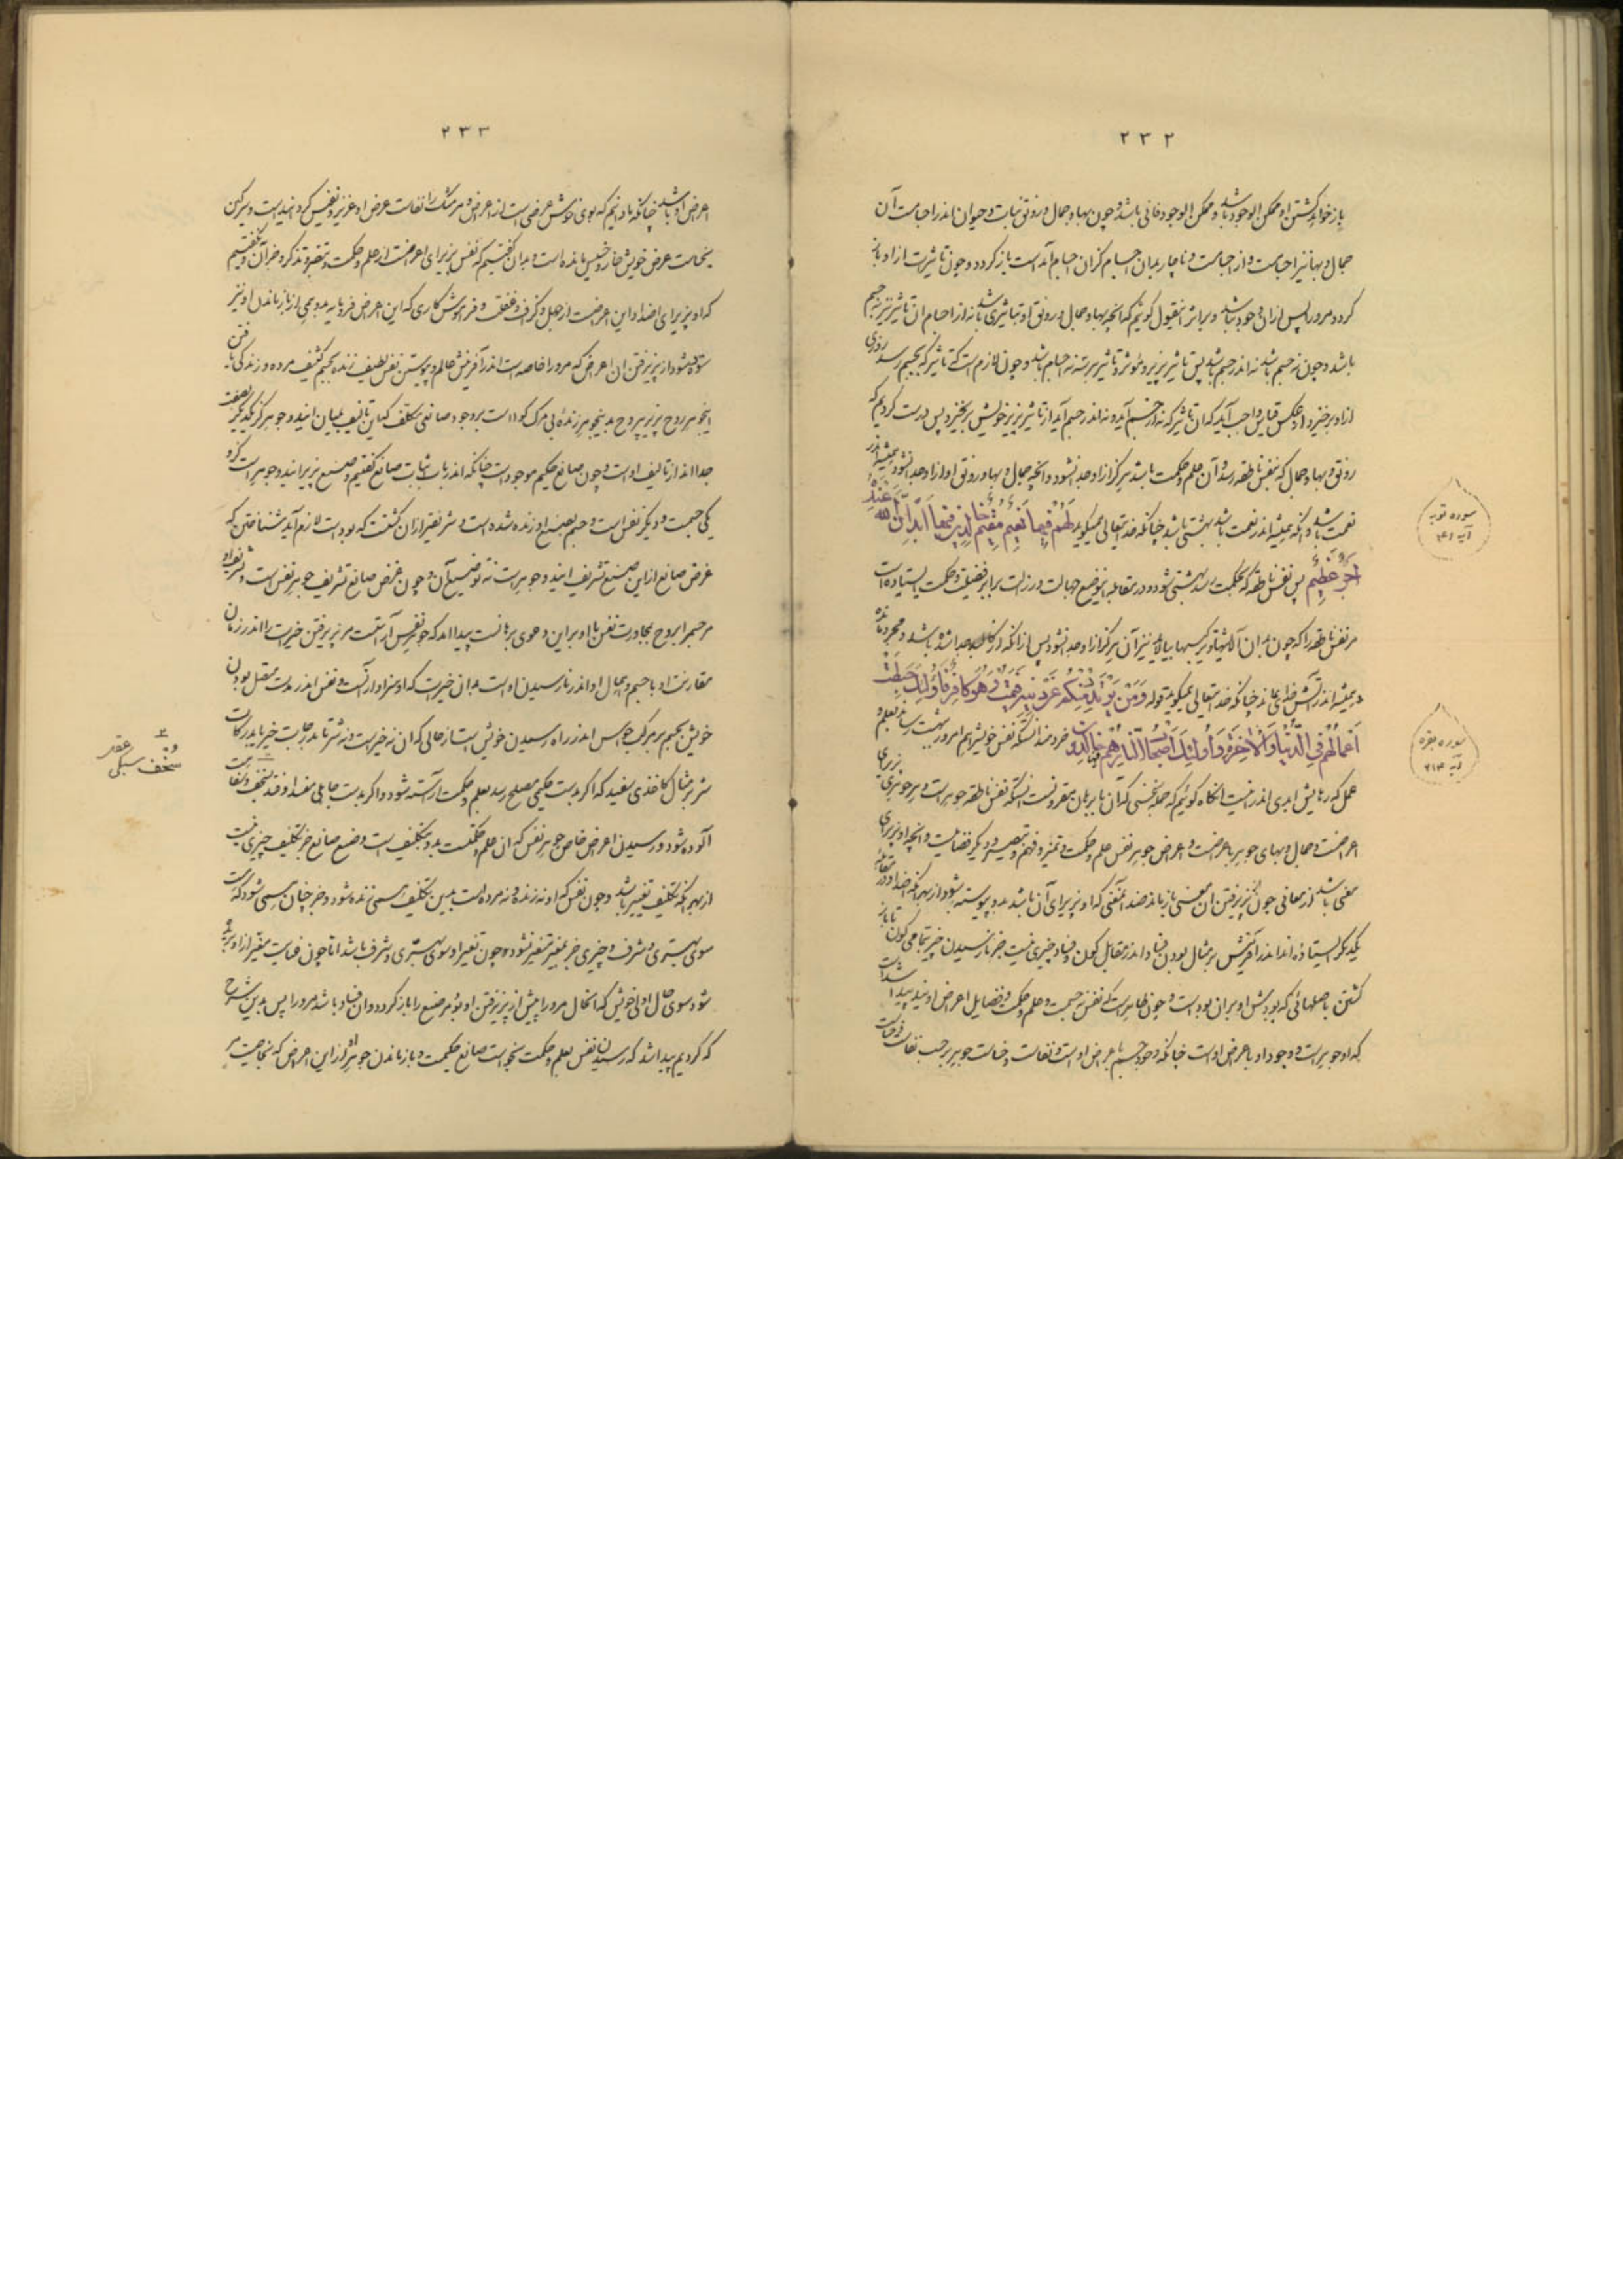 ۲۳۲
باز خواهد گشتن او ممکن الوجود باشد و ممکن الوجود فانی باشد و چون بها و جمال و رونق نبات و حیوان اندر اجسامست آن
جمال و بها نیز اجسامست و از اجسامست و ناچار بمیان اجسام کز آن اجسام آمدست باز گردد و چون تاثیرست از او باز
گردد مر او را پس از آن وجود نباشد و برابر این قول گوئیم که آنچه بها و جمال و رونق او تباثیری باشد نه از اجسام آن تاثیر نیز نه جسم
باشد و چون نه جسم باشد نه اندر جسم باشد پس تاثیر پذیر و مؤثر و تاثیر هر سه نه اجسام باشد و چون لازم است که تاثیر که بجسم رسد روزی
از او برخیزد از عکس قیاس واجب آید که آن تاثیر که نه از جسم آید و نه اندر جسم آید از تاثیر پذیر خویش برنخیزد پس درست کردیم که
رونق و بها و جمال که بنفس ناطقه رسد و آن علم و حکمت باشد هرگز از او جدا نشود و آنچه جمال و بها و رونق او از او جدا نشود همیشه اندر
نعمت باشد و آنکه همیشه اندر نعمت باشد بهشتی باشد چنانکه خدایتعالی میگوید لَهُمْ فِیهَا نَعِیمٌ مُقِیمٌ خَالِدِینَ فِیهَا اَبَداً اِنَّ اللّهَ عِنْدَهُ
اَجْرٌ عَظِیمٌ پس نفس ناطقه که بحکمت رسد بهشتی شود و در مقابله این وضع جهالت و رذالت برابر فضیلت و حکمت ایستاده است
مر نفس ناطقه را که چون بدان آلایشها و یرکیبها بیالاید نیز آن هرگز از او جدا نشود پس از آنکه از کالبد جدا شده باشد و مجرد مانده
و همیشه اندر آتش خدای بماند چنانکه خدایتعالی میگوید قوله وَمَنْ یَرْتَدِدْ مِنْکُمْ عَنْ دِینِهِ فَیَمُتْ وَهُوَ کَافِرٌ فَأُولَئِكَ حَبِطَتْ
اَعْمَالُهُمْ فِی الدُّنْیَا وَالْآخِرَةِ وَأُولَئِكَ اَصْحَابُ النَّارِ هُمْ فِیهَا خَالِدُونَ خردمند آنست که نفس خویش را هم امروز ببهشت رساند بعلم و
عمل که رهایش ابدی اندر اینست آنگاه گوئیم که جمله سخنی که آن با برهان مقرونست آنستکه نفس ناطقه جوهر است و هر جوهری پذیرای
اعراضست و جمال و بهای جوهر باعراضست و اعراض جوهر نفس علم و حکمت و تمیز و فهم و تبصیر و دیگر فضایلست و آنچه او پذیرای
معنی باشد از معانی چون از پذیرفتن آن معنی باز ماند ضد آنمعنی که او پذیرای آن باشد بدو پیوسته شود از بهر آنکه اضداد در مقابله
یکدیگر ایستاده اند اندر آفرینش بر مثال بودن فساد اندر مقابل کون و فساد چیزی نیست جز باز رسیدن چیز بتمامی کون تا باز
گشتن باصلهائی که بودش او بر آن بوده است و چون ظاهر است که نفس نه جسمست و علم و حکمت و فضایل اعراض اویند پیدا شده است
که او جوهر است و وجود او باعراض اوست چنانکه وجود جسم باعراض اوست و نفاست و خساست جوهر بر حسب نفاست و خساست
سوره توبه
آیه ۲۱
سوره بقره
آیه ۲۱۴
۲۳۳
اعراض او باشد چنانکه ما دانیم که بوی خوش عرضی است از اعراض و مر مشک را نفاست عرض او عزیز و نفیس گردانیده است و سرگین
بخساست عرض خویش خار و خسیس مانده است و بدان گفتیم که نفس پذیرای اعراضست از علم و حکمت و تبصر و تذکر و جز آن و گفتیم
که او پذیرای اضداد این اعراضست از جهل و گزاف و غفلت و فراموش کاری که این اعراض فرومایه بدو همی از باز ماندن او نیز
ستوده شود از پذیرفتن آن اعراض که مر او را خاصه است اندر آفرینش عالم و پیوستن نفس لطیف زنده بجسم کثیف مرده و زندگی یافتن
این جوهر روح پذیر بی روح بدین جوهر زنده بی مرگ گواه است بر وجود صانعی مکلف که این تالیف بمیان ایندو جوهر کز یکدیگر بصفت
جدا اند از تالیف اوست و چون صانع حکیم موجود است چنانکه اندر باب اثبات صانع گفتیم و صنع پذیر ایندو جوهر است کزو
یکی جسمست و دیگر نفس است و جسم بصنع او زنده شده است و شریفتر از آن گشتست که بوده است لازم آید شناختن که
غرض صانع از این صنع تشریف ایندو جوهر است نه توضیع آن و چون غرض صانع تشریف جوهر نفس است و شریف او
مر جسم را بروح بمجاورت نفس با او بر این دعوی برهانست پیدا آمد که جوهر نفس آراستست مر پذیرفتن خیرات را اندر زمان
مقارنت او با جسم و اهمال او اندر نارسیدن اوست بدان خیرات که او سزاوار آنست و نفس اندر مدت متصل بودن
خویش بجسم مر برگ حواس اندر راه رسیدن خویش است از حالی که آن نه خیرست و نه شر تا بدرجات خیر یا بدرکات
شر بر مثال کاغذی سفید که اگر بدست حکیمی مصلح رسد بعلم و حکمت آراسته شود و اگر بدست جاهلی مفسد اوفتد بسخف و سفاهت
آلوده شود و رسیدن اعراض خاص جوهر نفس که آن علم و حکمتست بدو بتکلیف است و صنع صانع جز بتکلیف چیزی نیست
از بهر آنکه تکلیف تغییر باشد و چون نفس که او نه زنده و نه مرده است بدین تکلیف همی زنده شود و جز چنان همی شود که هست
سوی بهتری و شرف و چیزی جز بمغیر متغیر نشود و چون تغییر او سوی بهتری و شرف باشد اما چون عنایت مغیر از او بریده
شود سوی حال اولی خویش که آنحال مر او را پیش از پذیرفتن او بود مر صنع را باز گردد و آن فساد باشد مر او را پس بدین شرح
که کردیم پیدا شد که رسیدن نفس بعلم و حکمت بخواست صانع حکیمست و باز ماندن جوهر او از این اعراض که بخاصیت مر
سخف سبکی عقل